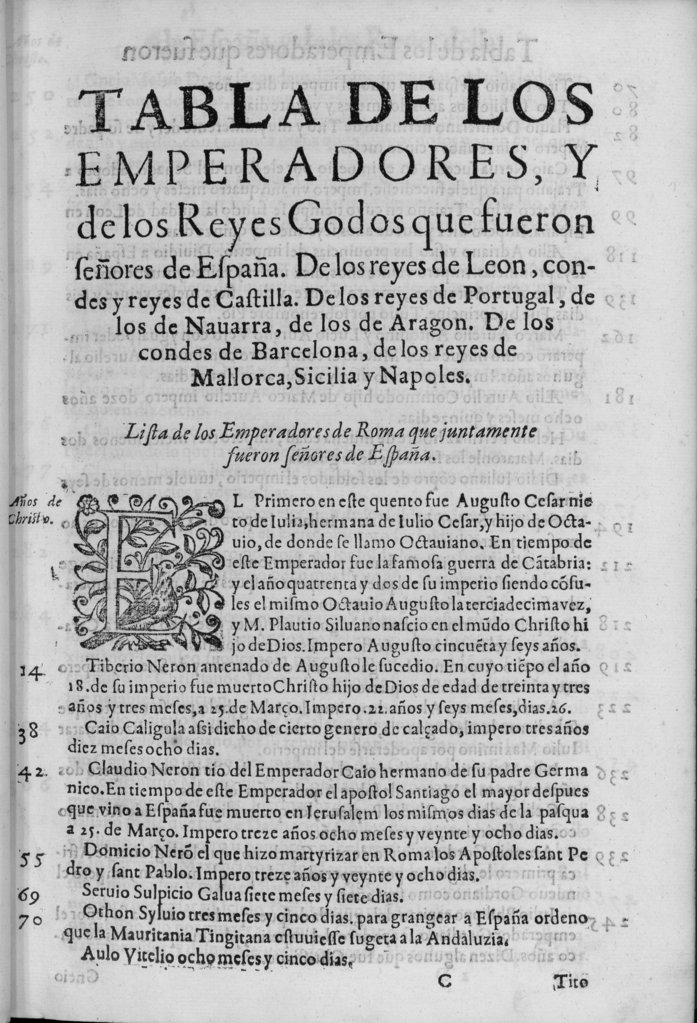 TABLA DE LOS
EMPERADORES, Y
de los Reyes Godos que fueron
ſeñores de Eſpaña. De los reyes de Leon, con-
des y reyes de Caſtilla. De los reyes de Portugal, de
los de Nauarra, de los de Aragon. De los
condes de Barcelona, de los reyes de
Mallorca, Sicilia y Napoles.
Liſta de los Emperadores de Roma que juntamente
fueron ſeñores de Eſpaña.
Años de
Chriſto.
EL Primero en eſte quento fue Auguſto Ceſar nie
to de Iulia, hermana de Iulio Ceſar, y hijo de Octa-
uio, de donde ſe llamo Octauiano. En tiempo de
eſte Emperador fue la famoſa guerra de Cātabria:
y el año quatrenta y dos de ſu imperio ſiendo cōſu-
les el miſmo Octauio Auguſto la terciadecima vez,
y M. Plautio Siluano naſcio en el mūdo Chriſto hi
jo de Dios. Impero Auguſto cincuēta y ſeys años.
14. Tiberio Neron antenado de Auguſto le ſucedio. En cuyo tiēpo el año
18. de ſu imperio fue muerto Chriſto hijo de Dios de edad de treinta y tres
años y tres meſes, a 25. de Março. Impero. 22. años y ſeys meſes, dias. 26.
38 Caio Caligula aſsi dicho de cierto genero de calçado, impero tres años
diez meſes ocho dias.
42. Claudio Neron tio del Emperador Caio hermano de ſu padre Germa
nico. En tiempo de eſte Emperador el apoſtol Santiago el mayor deſpues
que vino a Eſpaña fue muerto en Ieruſalem los miſmos dias de la paſqua
a 25. de Março. Impero treze años ocho meſes y veynte y ocho dias.
55 Domicio Nerō el que hizo martyrizar en Roma los Apoſtoles ſant Pe
dro y ſant Pablo. Impero treze años y veynte y ocho dias.
69 Seruio Sulpicio Galua ſiete meſes y ſiete dias.
70 Othon Syluio tres meſes y cinco dias. para grangear a Eſpaña ordeno
que la Mauritania Tingitana eſtuuieſſe ſugeta a la Andaluzia.
Aulo Vitelio ocho meſes y cinco dias.
C Tito